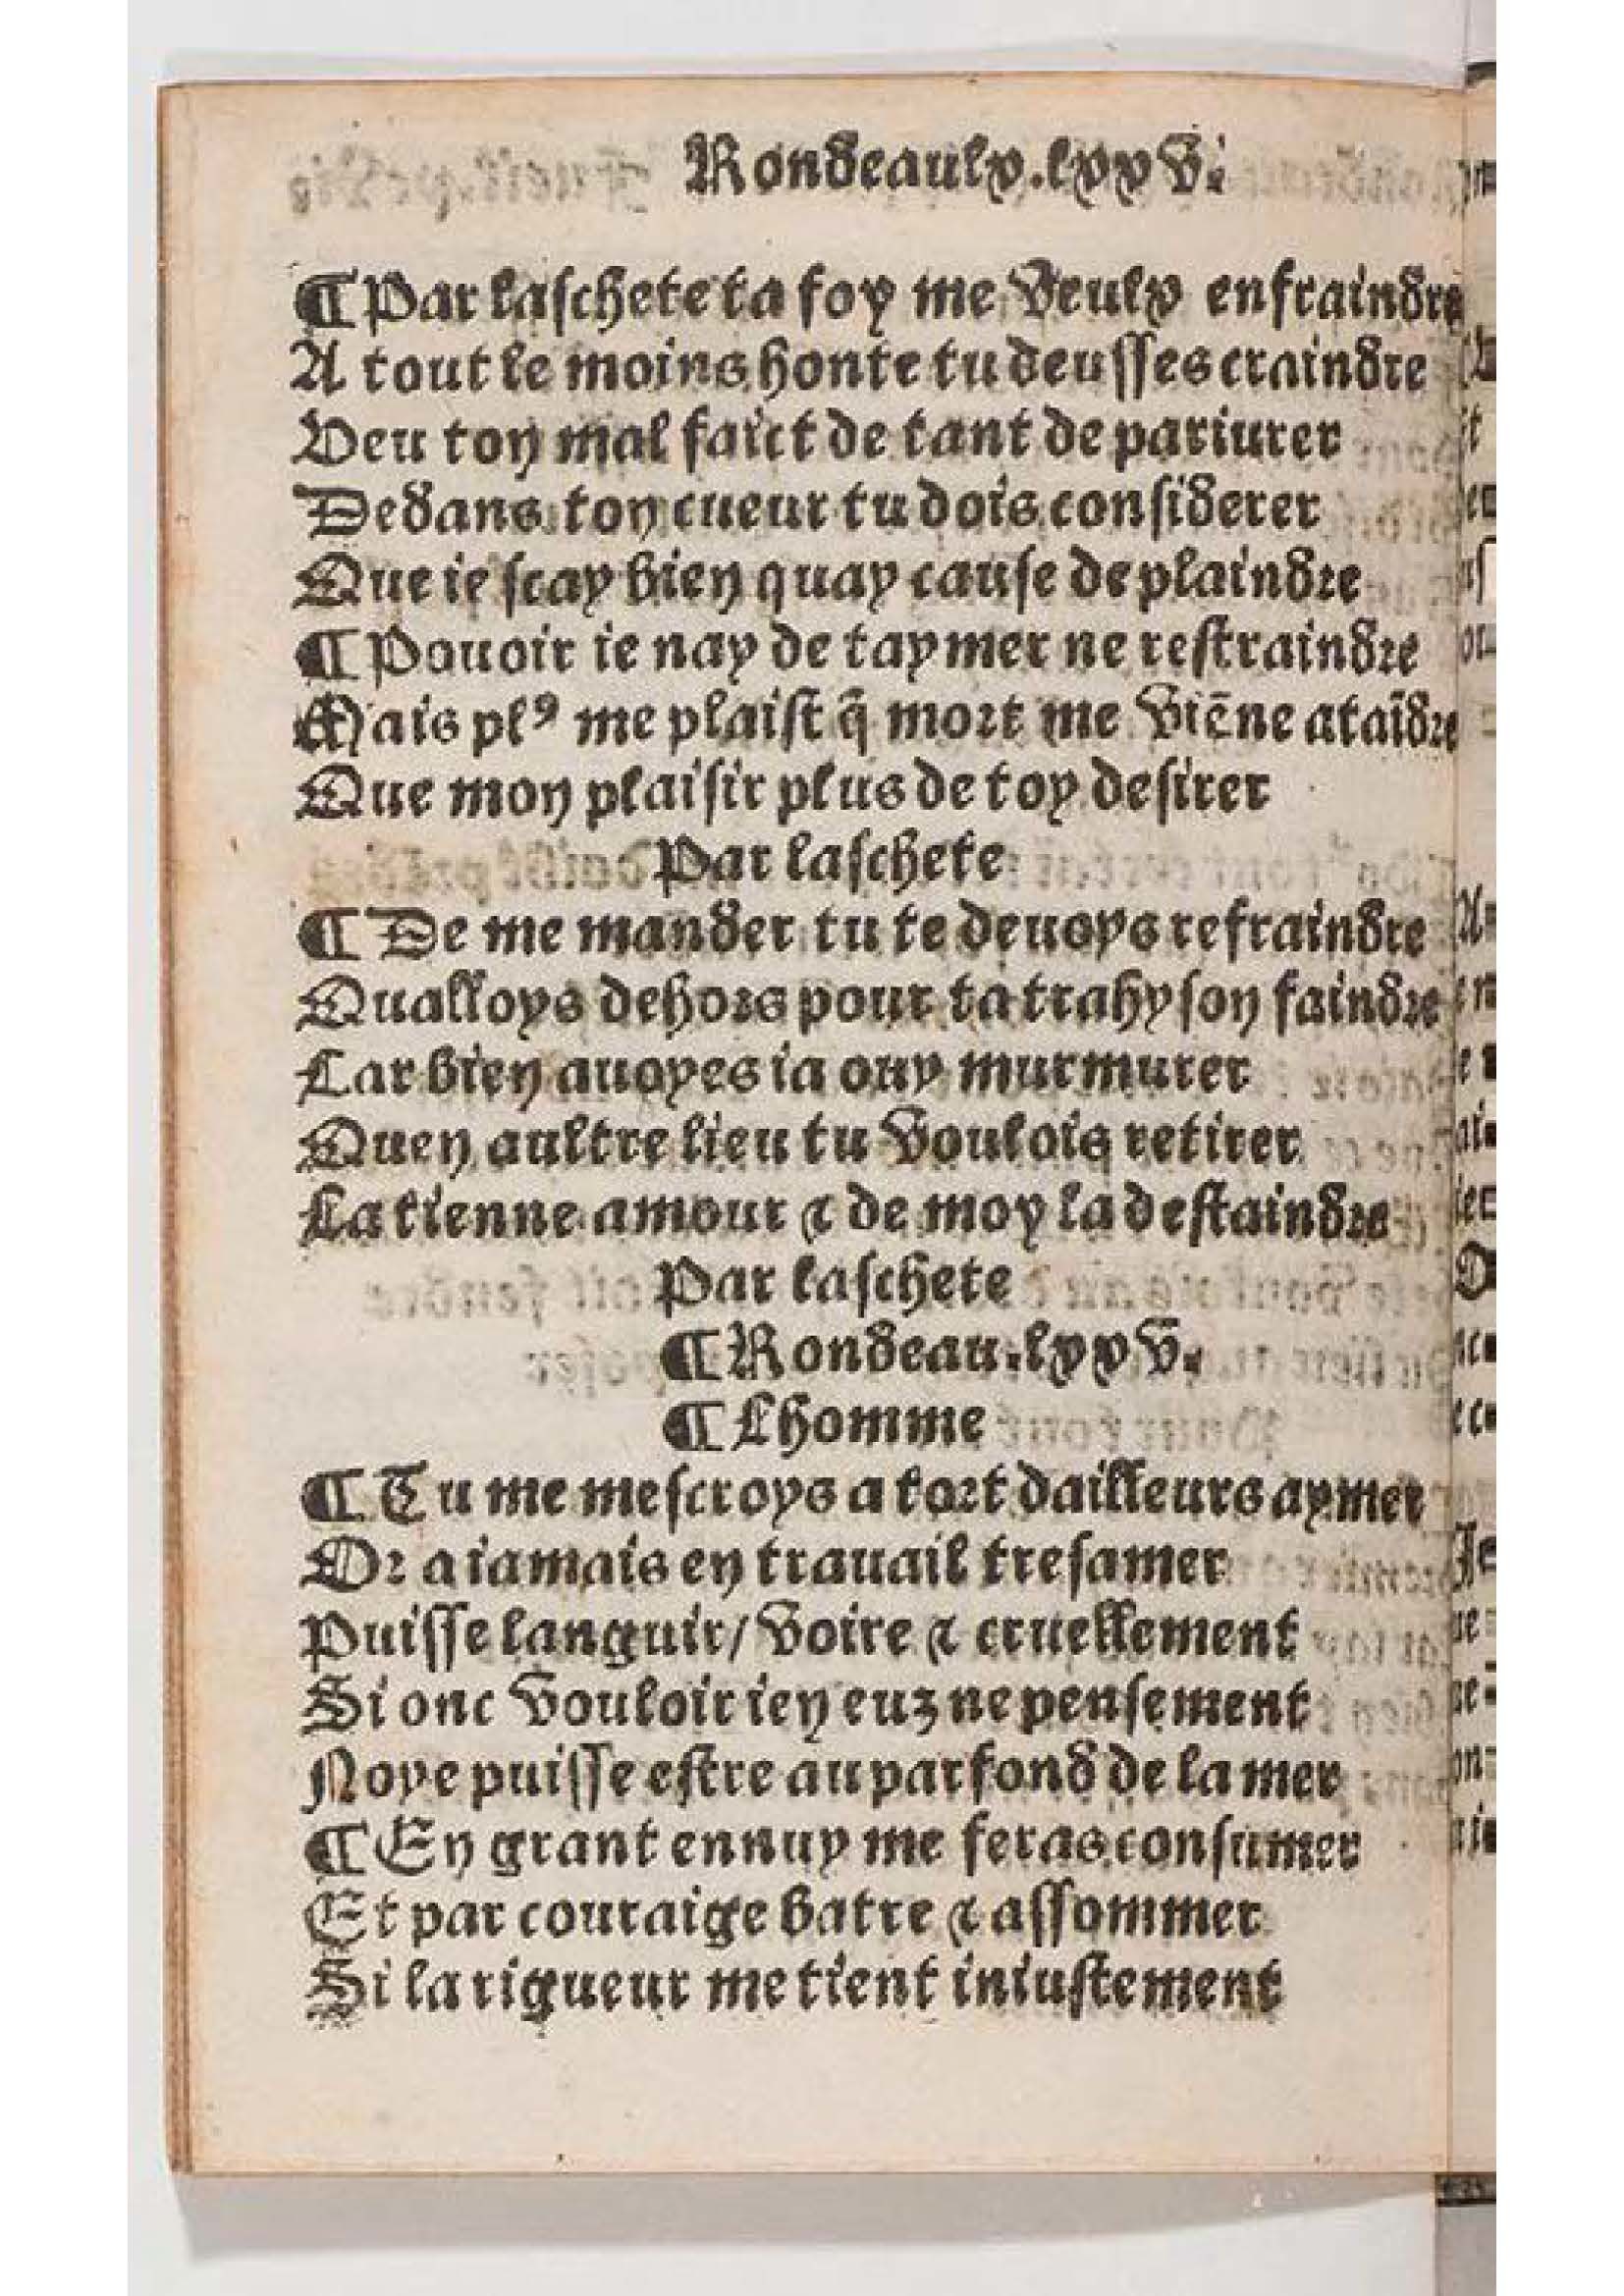 Rondeaulx.lxxv.
¶Par laschete ta foy me veulx enfraindre
A tout le moins honte tu deusses craindre
Veu ton mal faict de tant de pariurer
Dedans ton cueur tu dois considerer
Que ie scay bien quay cause de plaindre
¶Pouoir ie nay de taymer ne restraindre
Mais plꝰ me plaist q̃ mort me viẽne ataĩdre
Que mon plaisir plus de toy desirer
Par laschete
¶De me mander tu te deuoys refraindre
Qualloys dehors pour ta trahyson faindre
Car bien auoyes ia ouy murmurer
Quen aultre lieu tu voulois retirer
La tienne amour ⁊ de moy la destaindre
Par laschete
¶Rondeau.lxxv.
¶Lhomme
¶Tu me mescroys a tort dailleurs aymer
Or a iamais en trauail tresamer
Puisse languir/ voire ⁊ cruellement
Si onc vouloir ien euz ne pensement
Noye puisse estre au parfond de la mer
¶En grant ennuy me feras consumer
Et par couraige batre ⁊ assommer
Si la rigueur me tient iniustement